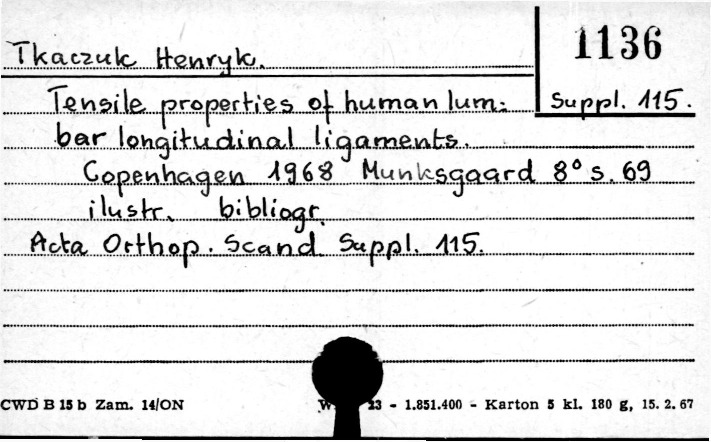 1136
Tkaczuk Henryk.
Suppl. 115.
Tensile properties of human lum-
bar longitudinal ligaments.
Copenhagen 1968 Munksgaard 8° s. 69
ilustr. bibliogr.
Acta Orthop. Scand. Suppl. 115.
CWD B 15 b Zam. 14/ON 23 - 1.851.400 - Karton 5 kl. 180 g, 15. 2. 67